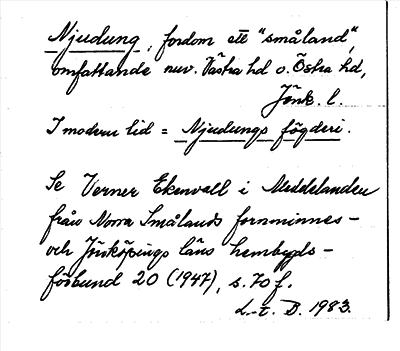 Njudung, fordom ett "småland",
omfattande nuv. Västra hd o. Östra hd,
Jönk. l.
I modern tid = Njudungs fögderi.
Se Verner Ekenvall i Meddelanden
från Norra Smålands fornminnes-
och Jönköpings läns hembygds-
förbund 20 (1947), s. 70 f.
L.-E. D. 1983.